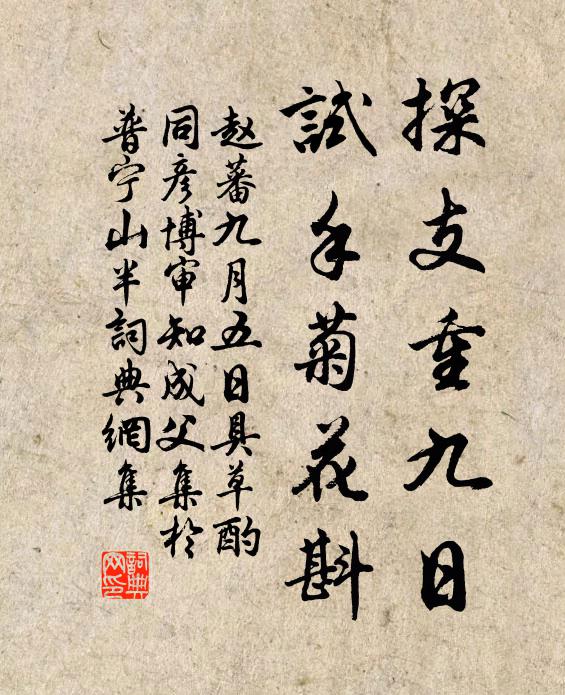 探支重九日
試手菊花斟
赵蕃九月五日具草酌
同彦博审知成父集於
普宁山半詞典網集
詞典网印